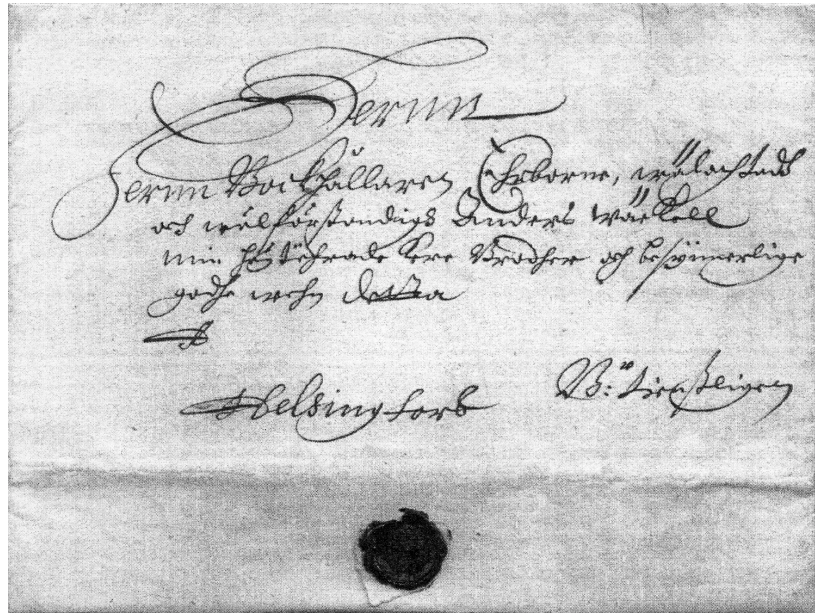 Herrnn
Herrnn Bookhållaren Ehrborne, wälachtadh
och wälförståndigh Anders Wäckell
min höghtährade kere Brodher och besynnerlige
godhe wehn detta
A
Helsingfors
B: tienstligen